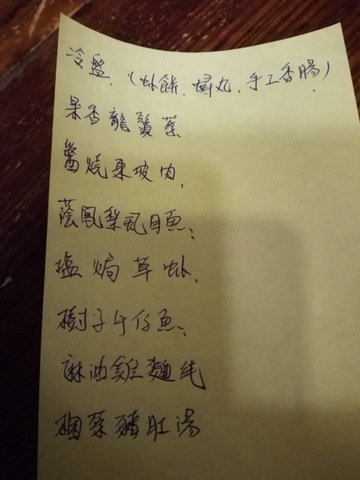 冷盤、(蚪餅、蟳丸、手工香腸)
果香龍鬚菜
醬燒東坡肉,
蔭鳳梨虱目魚、
塩焗草蚪、
樹子午仔魚、
麻油雞麵線
豬肚湯